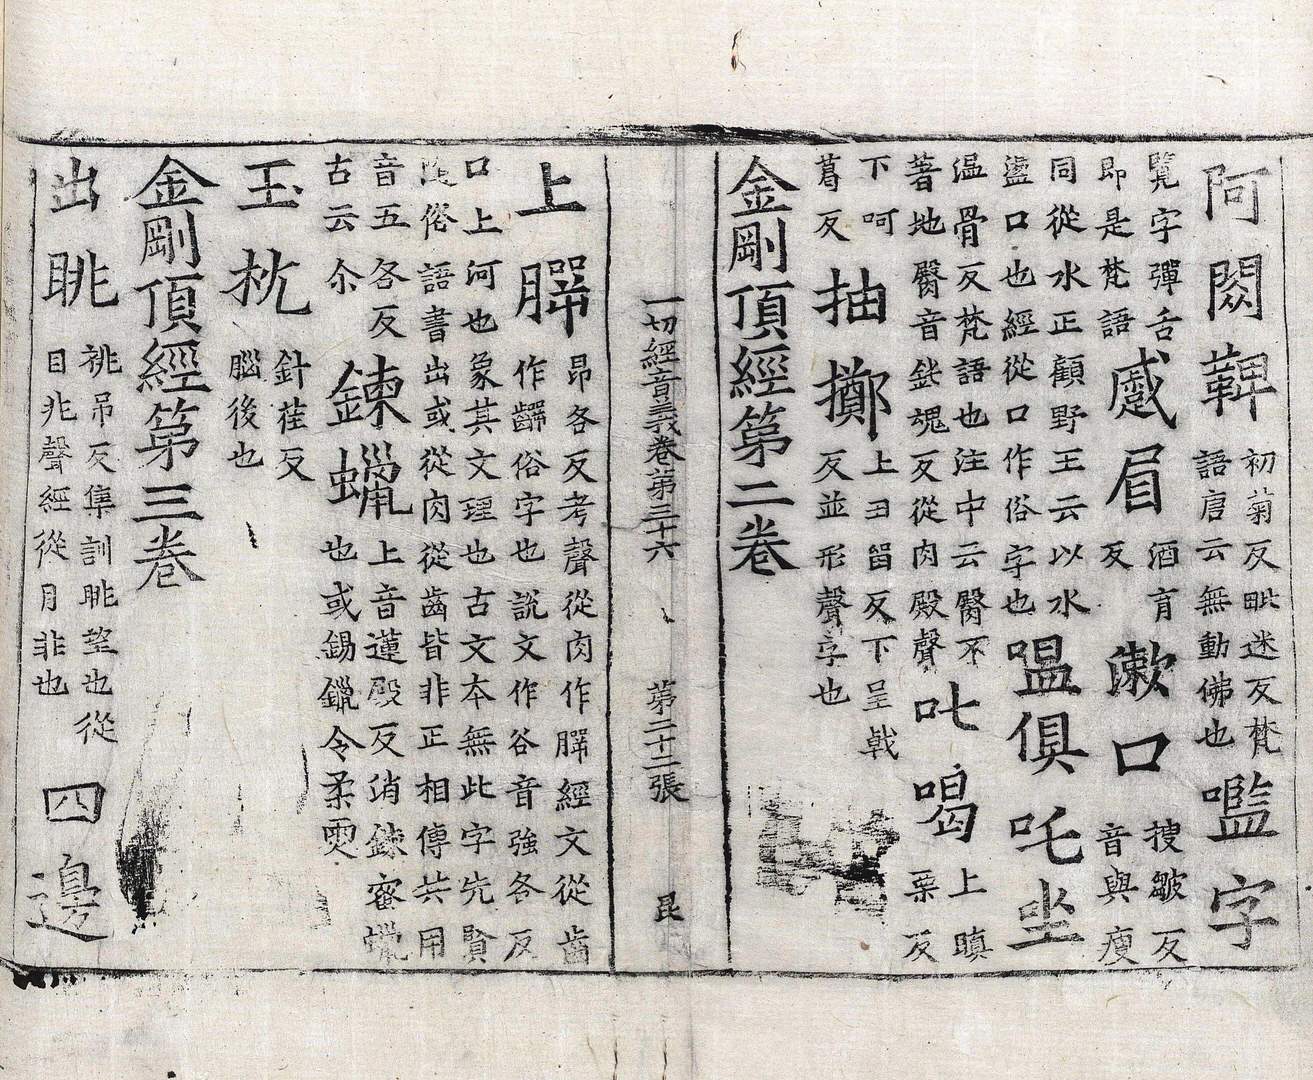 阿閦鞞初菊反毗迷反梵語唐云無動佛也㘕字
覽字彈舌即是梵語慼眉酒育反漱口捜皺反音與瘦
同從水正顧野王云以水盪口也經從口作俗字也嗢俱吒坐
溫骨反梵語也注中云臋不著地臋音鈋魂反從肉殿聲叱喝上瞋栗反
下呵葛反抽擲上丑留反下呈戟反並形聲字也
金剛頂經第二卷
一切經音義卷第三十六 第二十二張 昆
上腭昂各反考聲從肉作腭經文從齒作齶俗字也說文作谷音強各反
口上河也象其文理也古文本無此字先賢隨俗語書出或從肉從齒皆非正相傳共用
音五各反古云尒鍊蠟上音蓮殿反消鍊密蠟也或錫鑞令柔耎
玉枕針荏反腦後也
金剛頂經第三卷
出眺祧吊反集訓眺望也從目兆聲經從月非也四邊